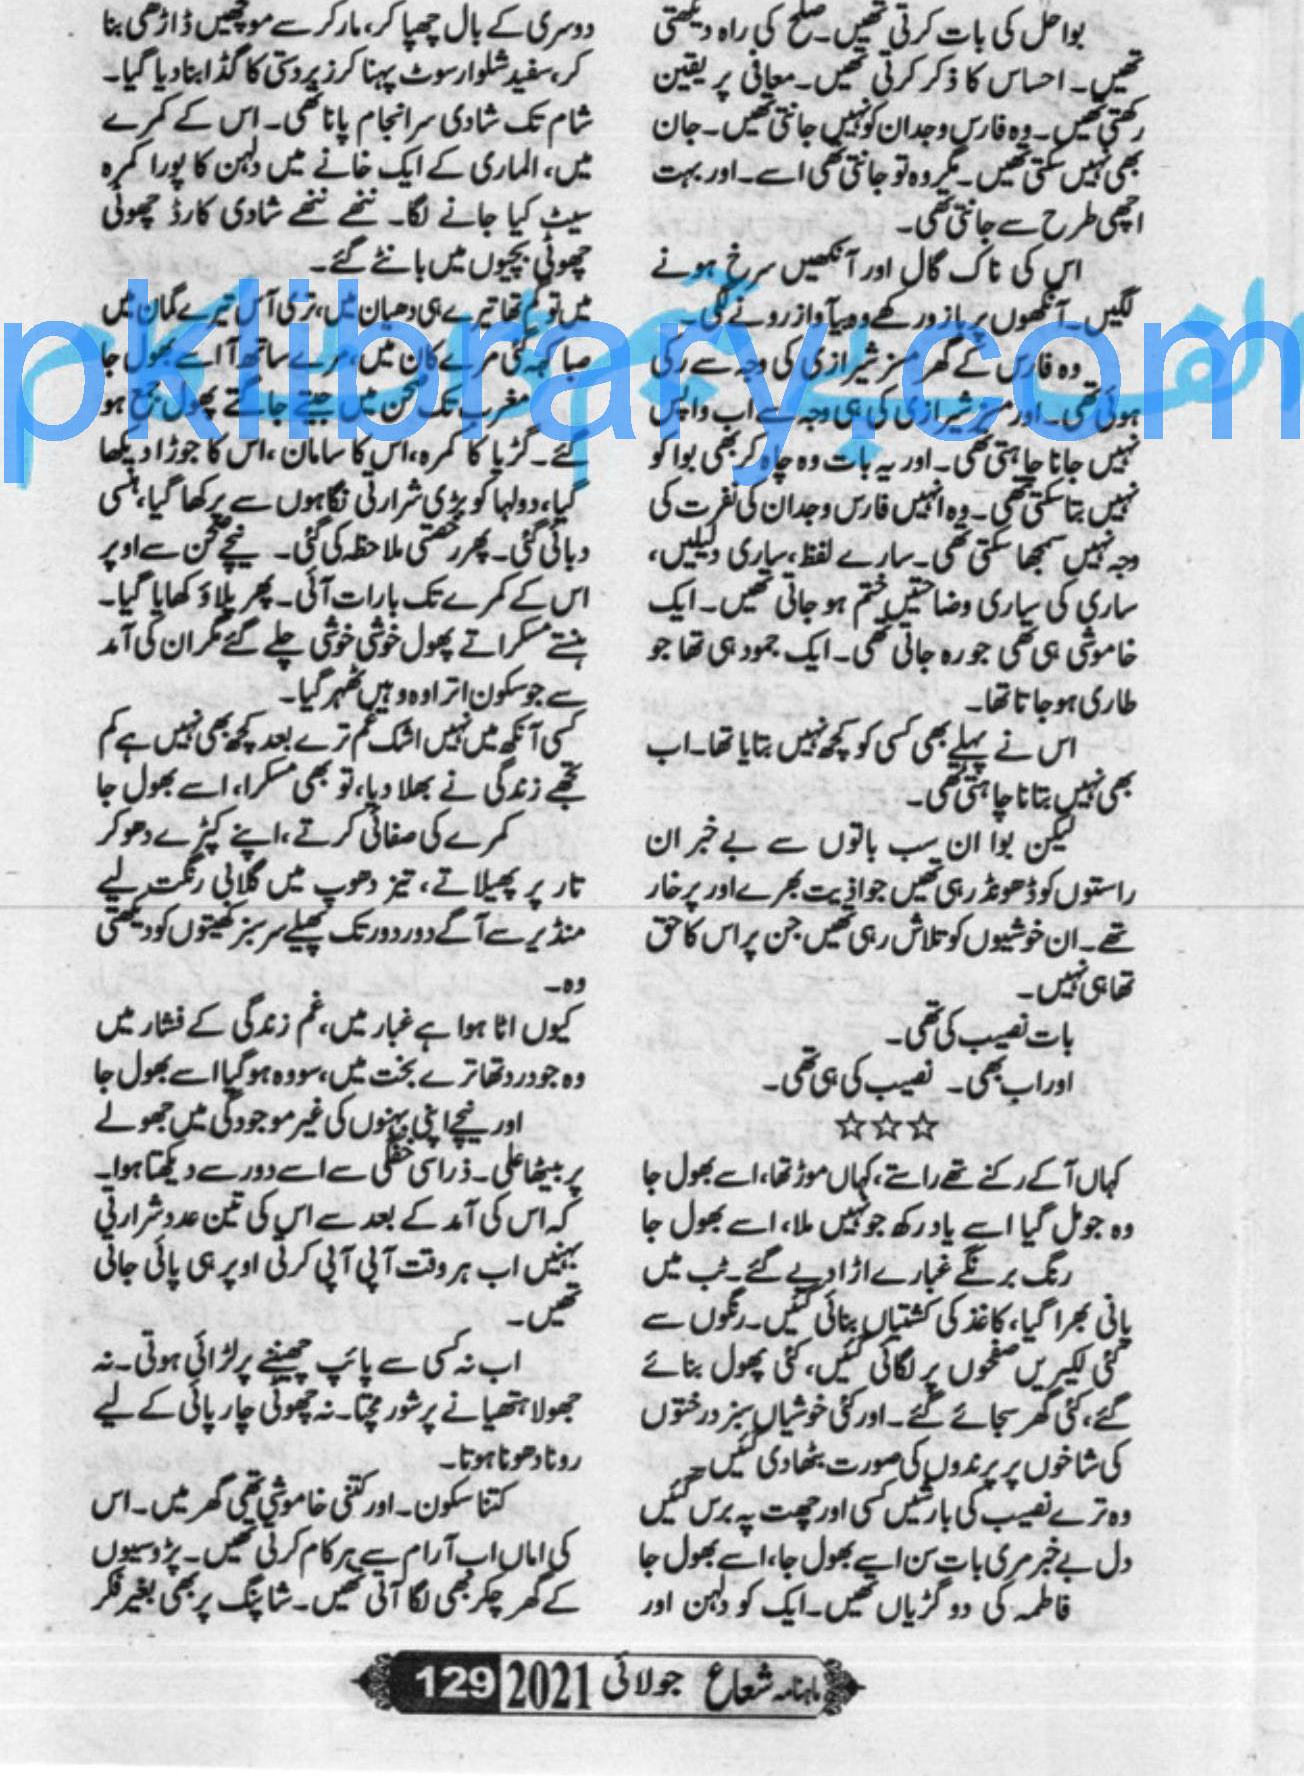 بوا حل کی بات کرتی تھیں۔ صلح کی راہ دیکھتی
تھیں۔ احساس کا ذکر کرتی تھیں۔ معافی پر یقین
رکھتی تھیں۔ وہ فارس وجدان کو نہیں جانتی تھیں۔ جان
بھی نہیں سکتی تھیں۔ مگر وہ تو جانتی تھی اسے۔ اور بہت
اچھی طرح سے جانتی تھی۔
اس کی ناک گال اور آنکھیں سرخ ہونے
لگیں۔ آنکھوں پر بازو رکھے وہ بے آواز رونے لگی۔
وہ فارس کے گھر مسز شیرازی کی وجہ سے رکی
ہوئی تھی۔ اور مسز شیرازی کی ہی وجہ سے اب واپس
نہیں جانا چاہتی تھی۔ اور یہ بات وہ چاہ کر بھی بوا کو
نہیں بتا سکتی تھی۔ وہ انہیں فارس وجدان کی نفرت کی
وجہ نہیں سمجھا سکتی تھی۔ سارے لفظ، ساری دلیلیں،
ساری کی ساری وضاحتیں ختم ہو جاتی تھیں۔ ایک
خاموشی ہی تھی جو رہ جاتی تھی۔ ایک جمود ہی تھا جو
طاری ہو جاتا تھا۔
اس نے پہلے بھی کسی کو کچھ نہیں بتایا تھا۔ اب
بھی نہیں بتانا چاہتی تھی۔
لیکن بوا ان سب باتوں سے بے خبر ان
راستوں کو ڈھونڈ رہی تھیں جو اذیت بھرے اور پرخار
تھے۔ ان خوشیوں کو تلاش رہی تھیں جن پر اس کا حق
تھا ہی نہیں۔
بات نصیب کی تھی۔
اور اب بھی۔ نصیب کی ہی تھی۔
☆☆☆
کہاں آ کے رکنے تھے راستے، کہاں موڑ تھا، اسے بھول جا
وہ جو مل گیا اسے یاد رکھ جو نہیں ملا، اسے بھول جا
رنگ برنگے غبارے اڑا دیے گئے۔ ٹب میں
پانی بھرا گیا، کاغذ کی کشتیاں بنائی گئیں۔ رنگوں سے
کئی لکیریں صفحوں پر لگائی گئیں، کئی پھول بنائے
گئے، کئی گھر سجائے گئے۔ اور کئی خوشیاں سبز درختوں
کی شاخوں پر پرندوں کی صورت بٹھا دی گئیں۔
وہ ترے نصیب کی بارشیں کسی اور چھت پہ برس گئیں
دل بے خبر مری بات سن اسے بھول جا، اسے بھول جا
فاطمہ کی دو گڑیاں تھیں۔ ایک کو دلہن اور
دوسری کے بال چھپا کر، مارکر سے مونچھیں ڈاڑھی بنا
کر، سفید شلوار سوٹ پہنا کر زبردستی کا گڈا بنا دیا گیا۔
شام تک شادی سرانجام پانا تھی۔ اس کے کمرے
میں، الماری کے ایک خانے میں دلہن کا پورا کمرہ
سیٹ کیا جانے لگا۔ ننھے ننھے شادی کارڈ چھوٹی
چھوٹی بچیوں میں بانٹے گئے۔
میں تو گم تھا تیرے ہی دھیان میں، تری آس تیرے گمان میں
صبا کہہ گئی مرے کان میں، مرے ساتھ آ اسے بھول جا
مغرب تک صحن میں جیتے جاگتے پھول جمع ہو
گئے۔ گڑیا کا کمرہ، اس کا سامان، اس کا جوڑا دیکھا
گیا، دولہا کو بڑی شرارتی نگاہوں سے پرکھا گیا، ہنسی
دبائی گئی۔ پھر رخصتی ملاحظہ کی گئی۔ نیچے صحن سے اوپر
اس کے کمرے تک بارات آئی۔ پھر پلاؤ کھایا گیا۔
ہنستے مسکراتے پھول خوشی خوشی چلے گئے مگر ان کی آمد
سے جو سکون اترا وہ وہیں ٹھہر گیا۔
کسی آنکھ میں نہیں اشک غم ترے بعد کچھ بھی نہیں ہے کم
تجھے زندگی نے بھلا دیا، تو بھی مسکرا، اسے بھول جا
کمرے کی صفائی کرتے، اپنے کپڑے دھو کر
تار پر پھیلاتے، تیز دھوپ میں گلابی رنگت لیے
منڈیر سے آگے دور دور تک پھیلے سرسبز کھیتوں کو دیکھتی
وہ۔
کیوں اٹا ہوا ہے غبار میں، غم زندگی کے فشار میں
وہ جو درد تھا ترے بخت میں، سو وہ ہو گیا اسے بھول جا
اور نیچے اپنی بہنوں کی غیر موجودگی میں جھولے
پر بیٹھا علی۔ ذرا سی خفگی سے اسے دور سے دیکھتا ہوا۔
کہ اس کی آمد کے بعد سے اس کی تین عدد شرارتی
بہنیں اب ہر وقت آپی آپی کرتی اوپر ہی پائی جاتی
تھیں۔
اب نہ کسی سے پائپ چھیننے پر لڑائی ہوتی۔ نہ
جھولا ہتھیانے پر شور مچتا۔ نہ چھوٹی چارپائی کے لیے
رونا دھونا ہوتا۔
کتنا سکون۔ اور کتنی خاموشی تھی گھر میں۔ اس
کی اماں اب آرام سے ہر کام کرتی تھیں۔ پڑوسیوں
کے گھر چکر بھی لگا آتی تھیں۔ شاپنگ پر بھی بغیر فکر
pklibrary.com
ماہنامہ شعاع جولائی 2021 129